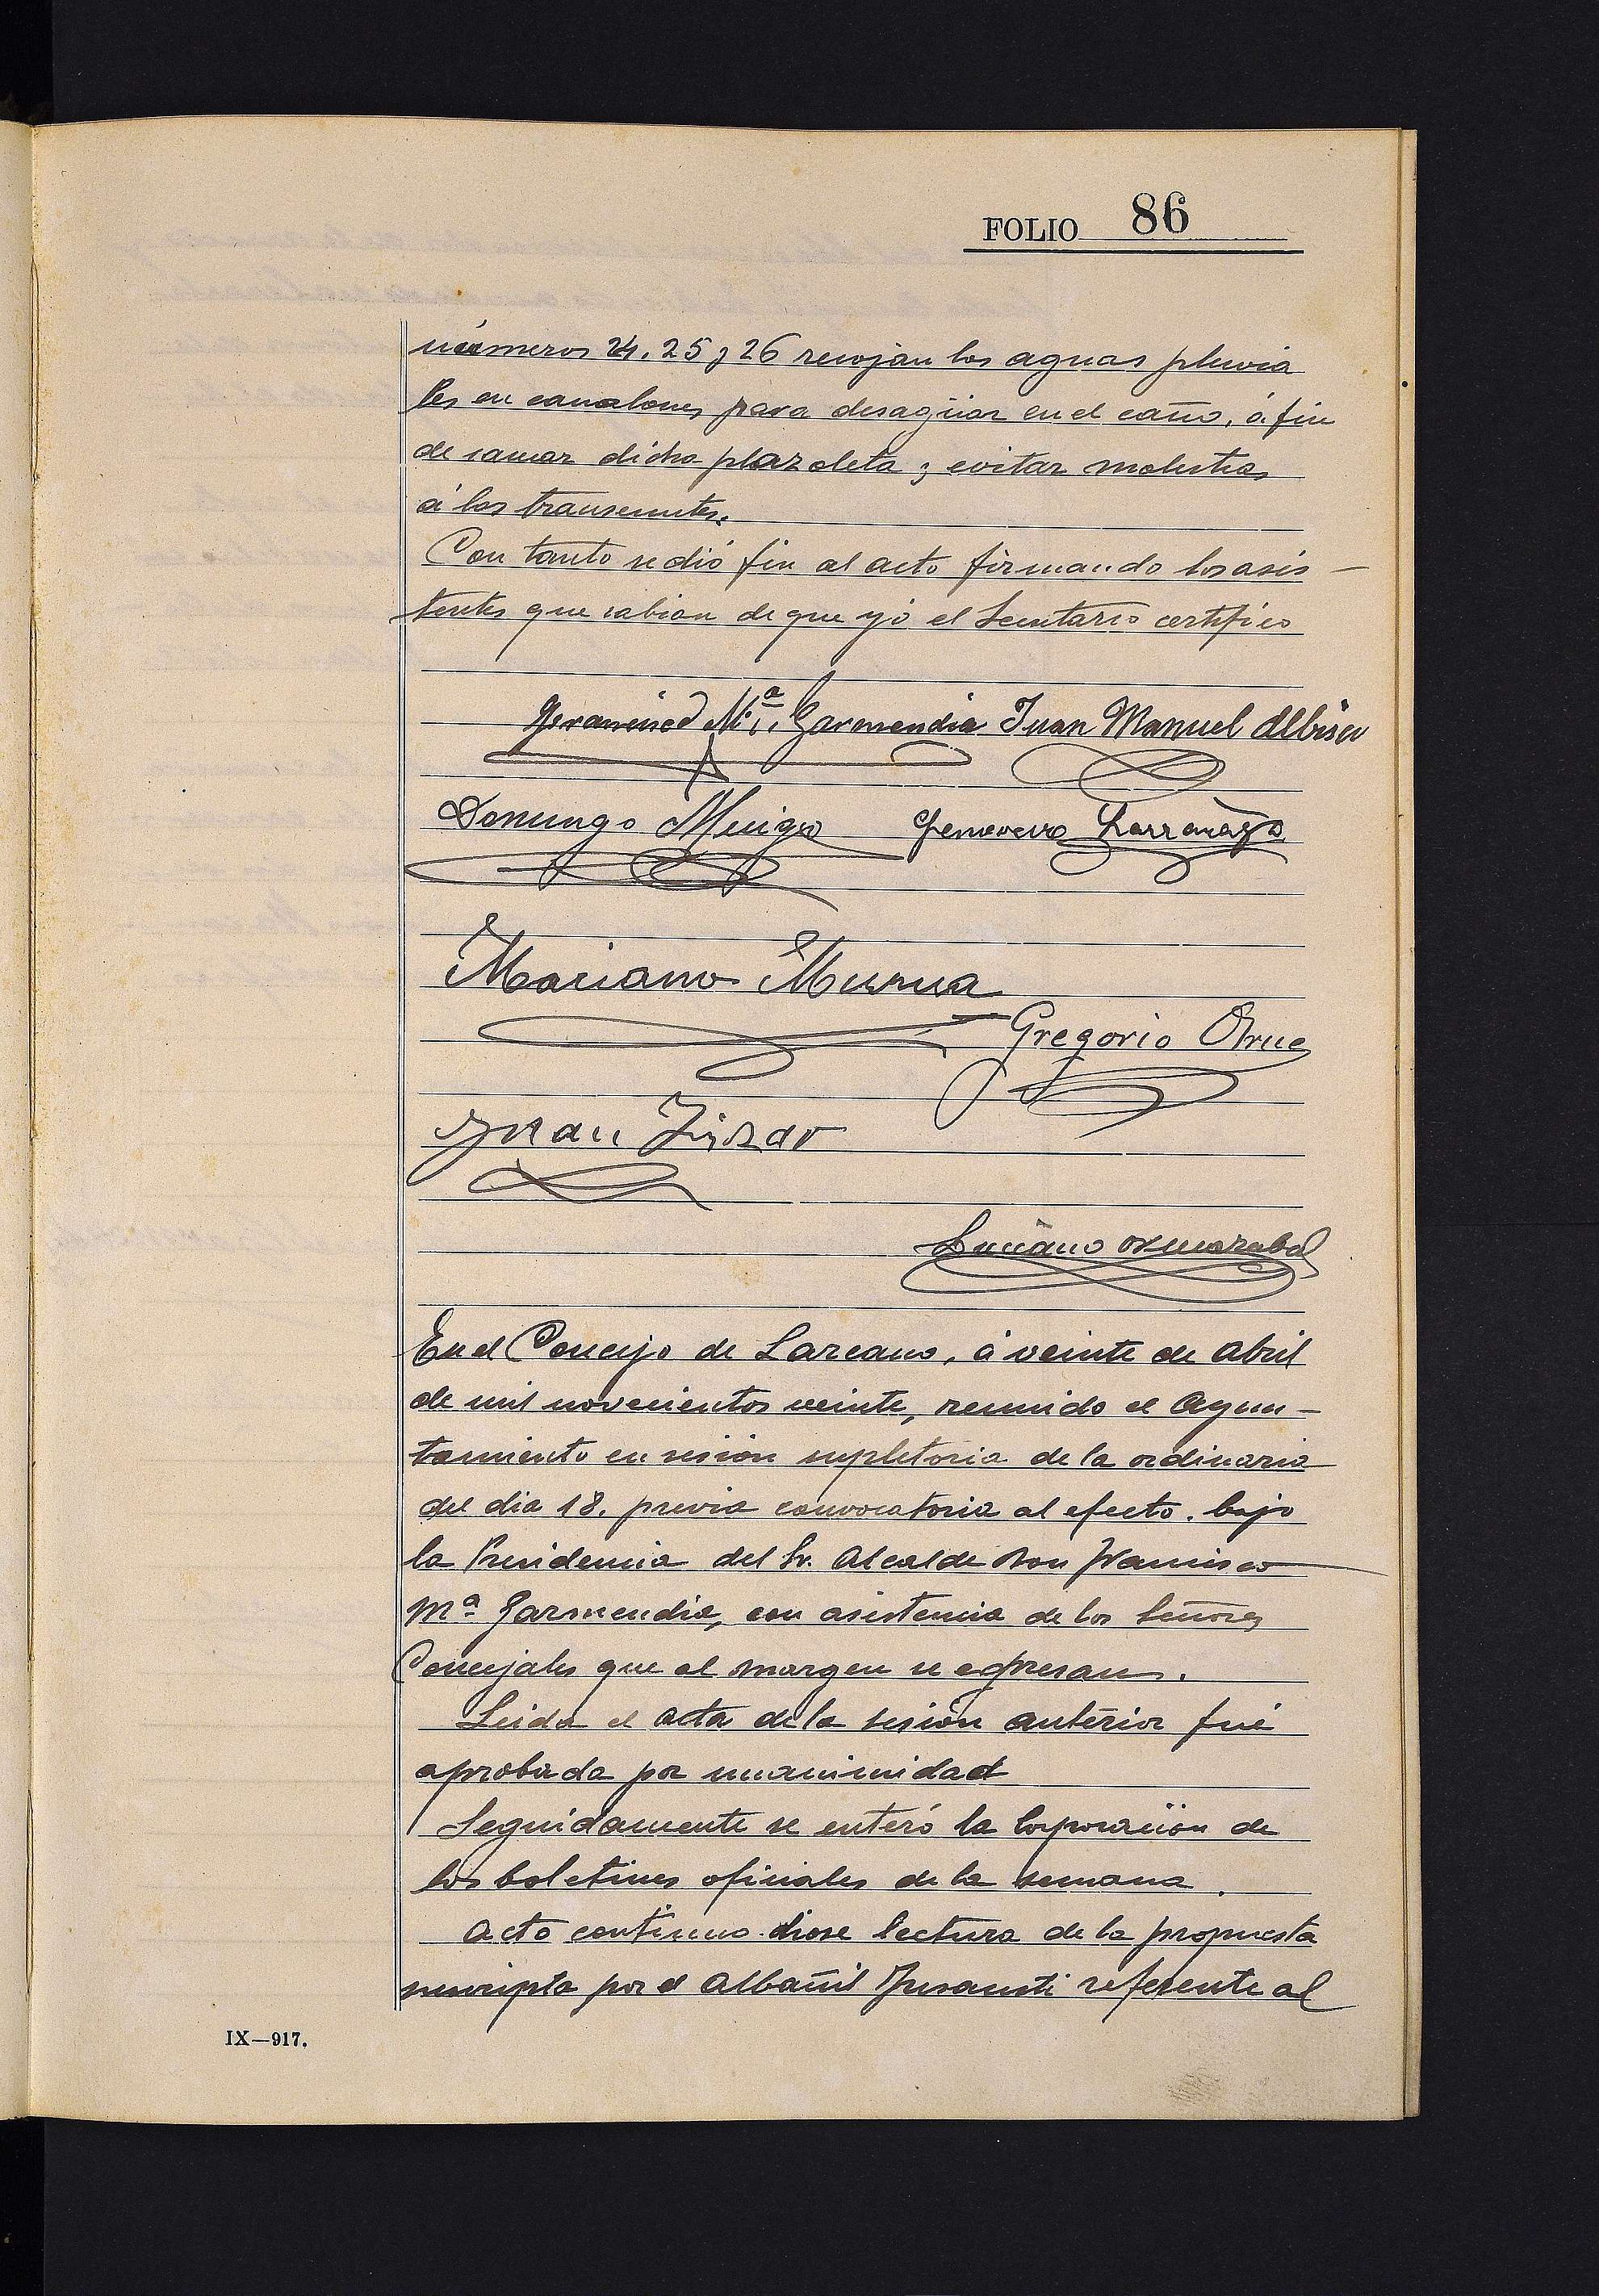 FOLIO 86
números 24, 25 y 26 recojan las aguas pluvia
les en canalones para desagüar en el caño, á fin
de sanear dicha plazoleta y evitar molestias
á los transeuntes.
Con tanto se dió fin al acto firmando los asis-
tentes que sabian de que yó el Secretario certifico
Francisco Mª. Garmendia Juan Manuel Albisu
Domingo Mugica Genovevo Larrañaga
Mariano Murua
Gregorio Orue
Juan
Luciano
En el Concejo de Lazcano, á veinte de Abril
de mil novecientos veinte, reunido el Ayun-
tamiento en sesión supletoria de la ordinaria
del dia 18, previa convocatoria al efecto, bajo
la Presidencia del Sr. Alcalde Don Francisco
Mª Garmendia, con asistencia de los Señores
Concejales que al margen se expresan.
Leida el acta de la sesión anterior fué
aprobada por unanimidad
Seguidamente se enteró la Corporación de
los boletines oficiales de la semana.
Acto continuo diose lectura de la propuesta
suscripta por el Albañil referente al
IX—917.